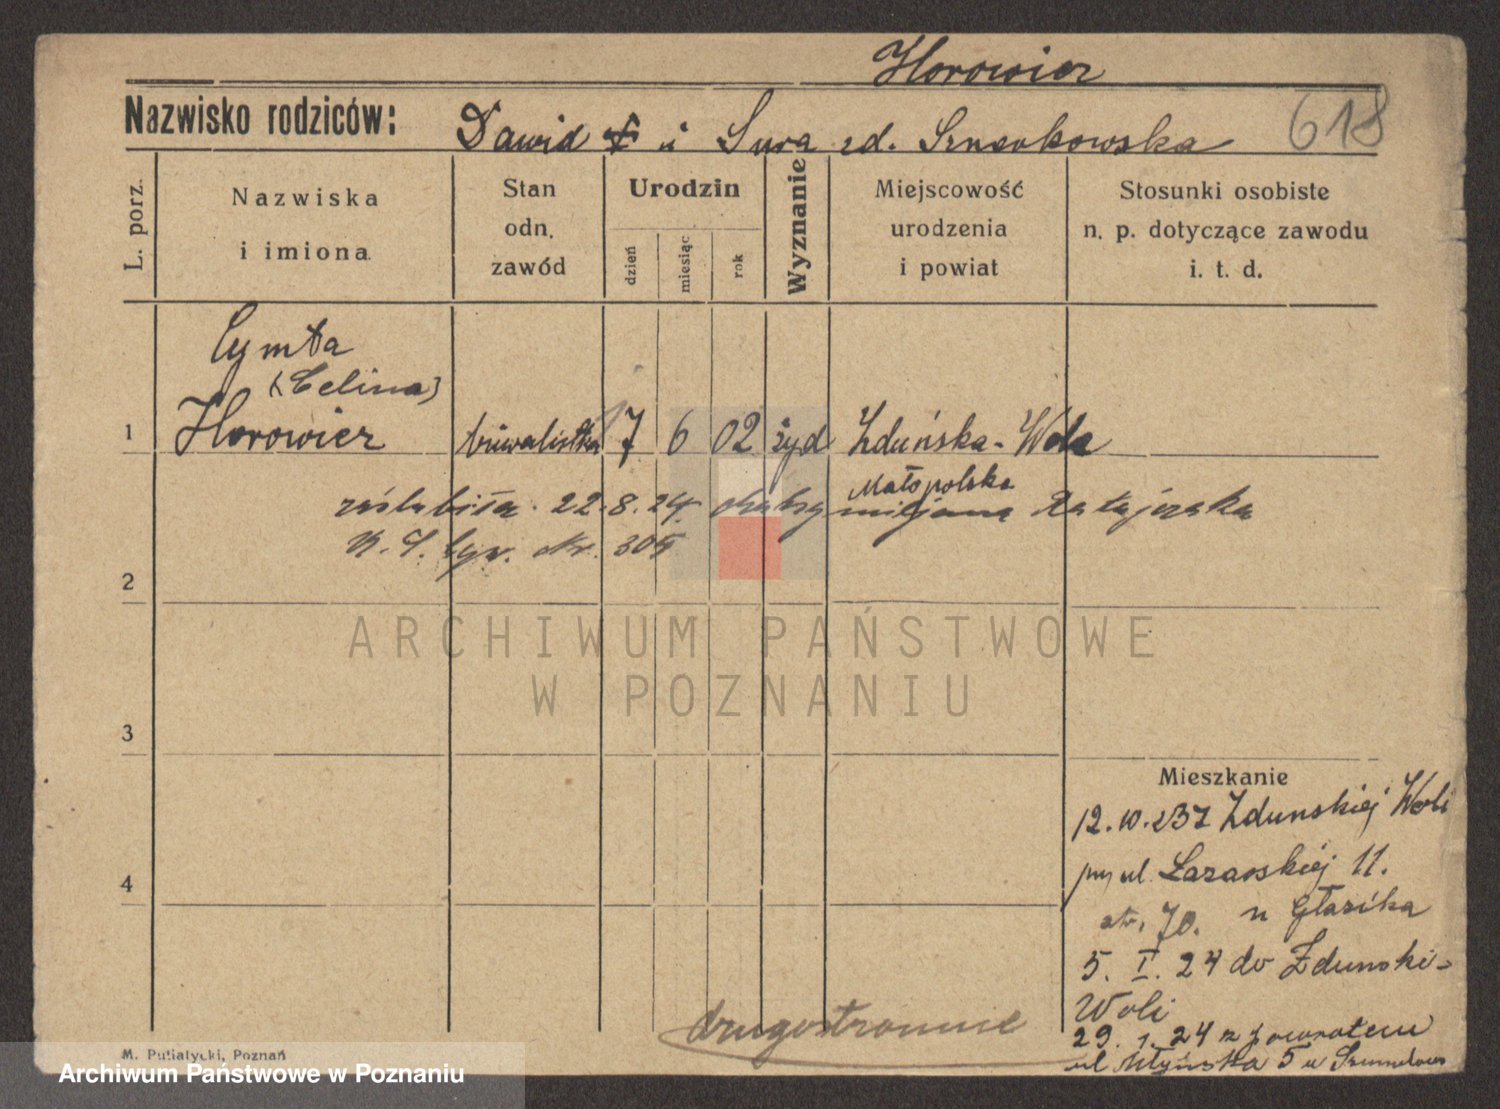 Horowicz
Nazwisko rodziców: Dawid i Sura zd. Sznerkowska
618
L. porz.
Nazwiska
i imiona
Stan
odn.
zawód
Urodzin
dzień
miesiąc
rok
Wyznanie
Miejscowość
urodzenia
i powiat
Stosunki osobiste
n. p. dotyczące zawodu
i. t. d.
Cymta
(Celina)
1 Horowicz 7 6 02 żyd Zduńska-Wola
Małopolska
zaślubiła 22.8.24 Ratajczaka
Nr. 305
2
ARCHIWUM PAŃSTWOWE
W POZNANIU
3
4
Mieszkanie
12.10.23 z Zdunskiej Woli
przy ul. 11.
str. 70. u
5. I. 24 do Zdunski-
Woli
29. 1. 24 z powrotem
ul Młyńska 5 u
drugostronnie
M. Putiatycki, Poznań
Archiwum Państwowe w Poznaniu